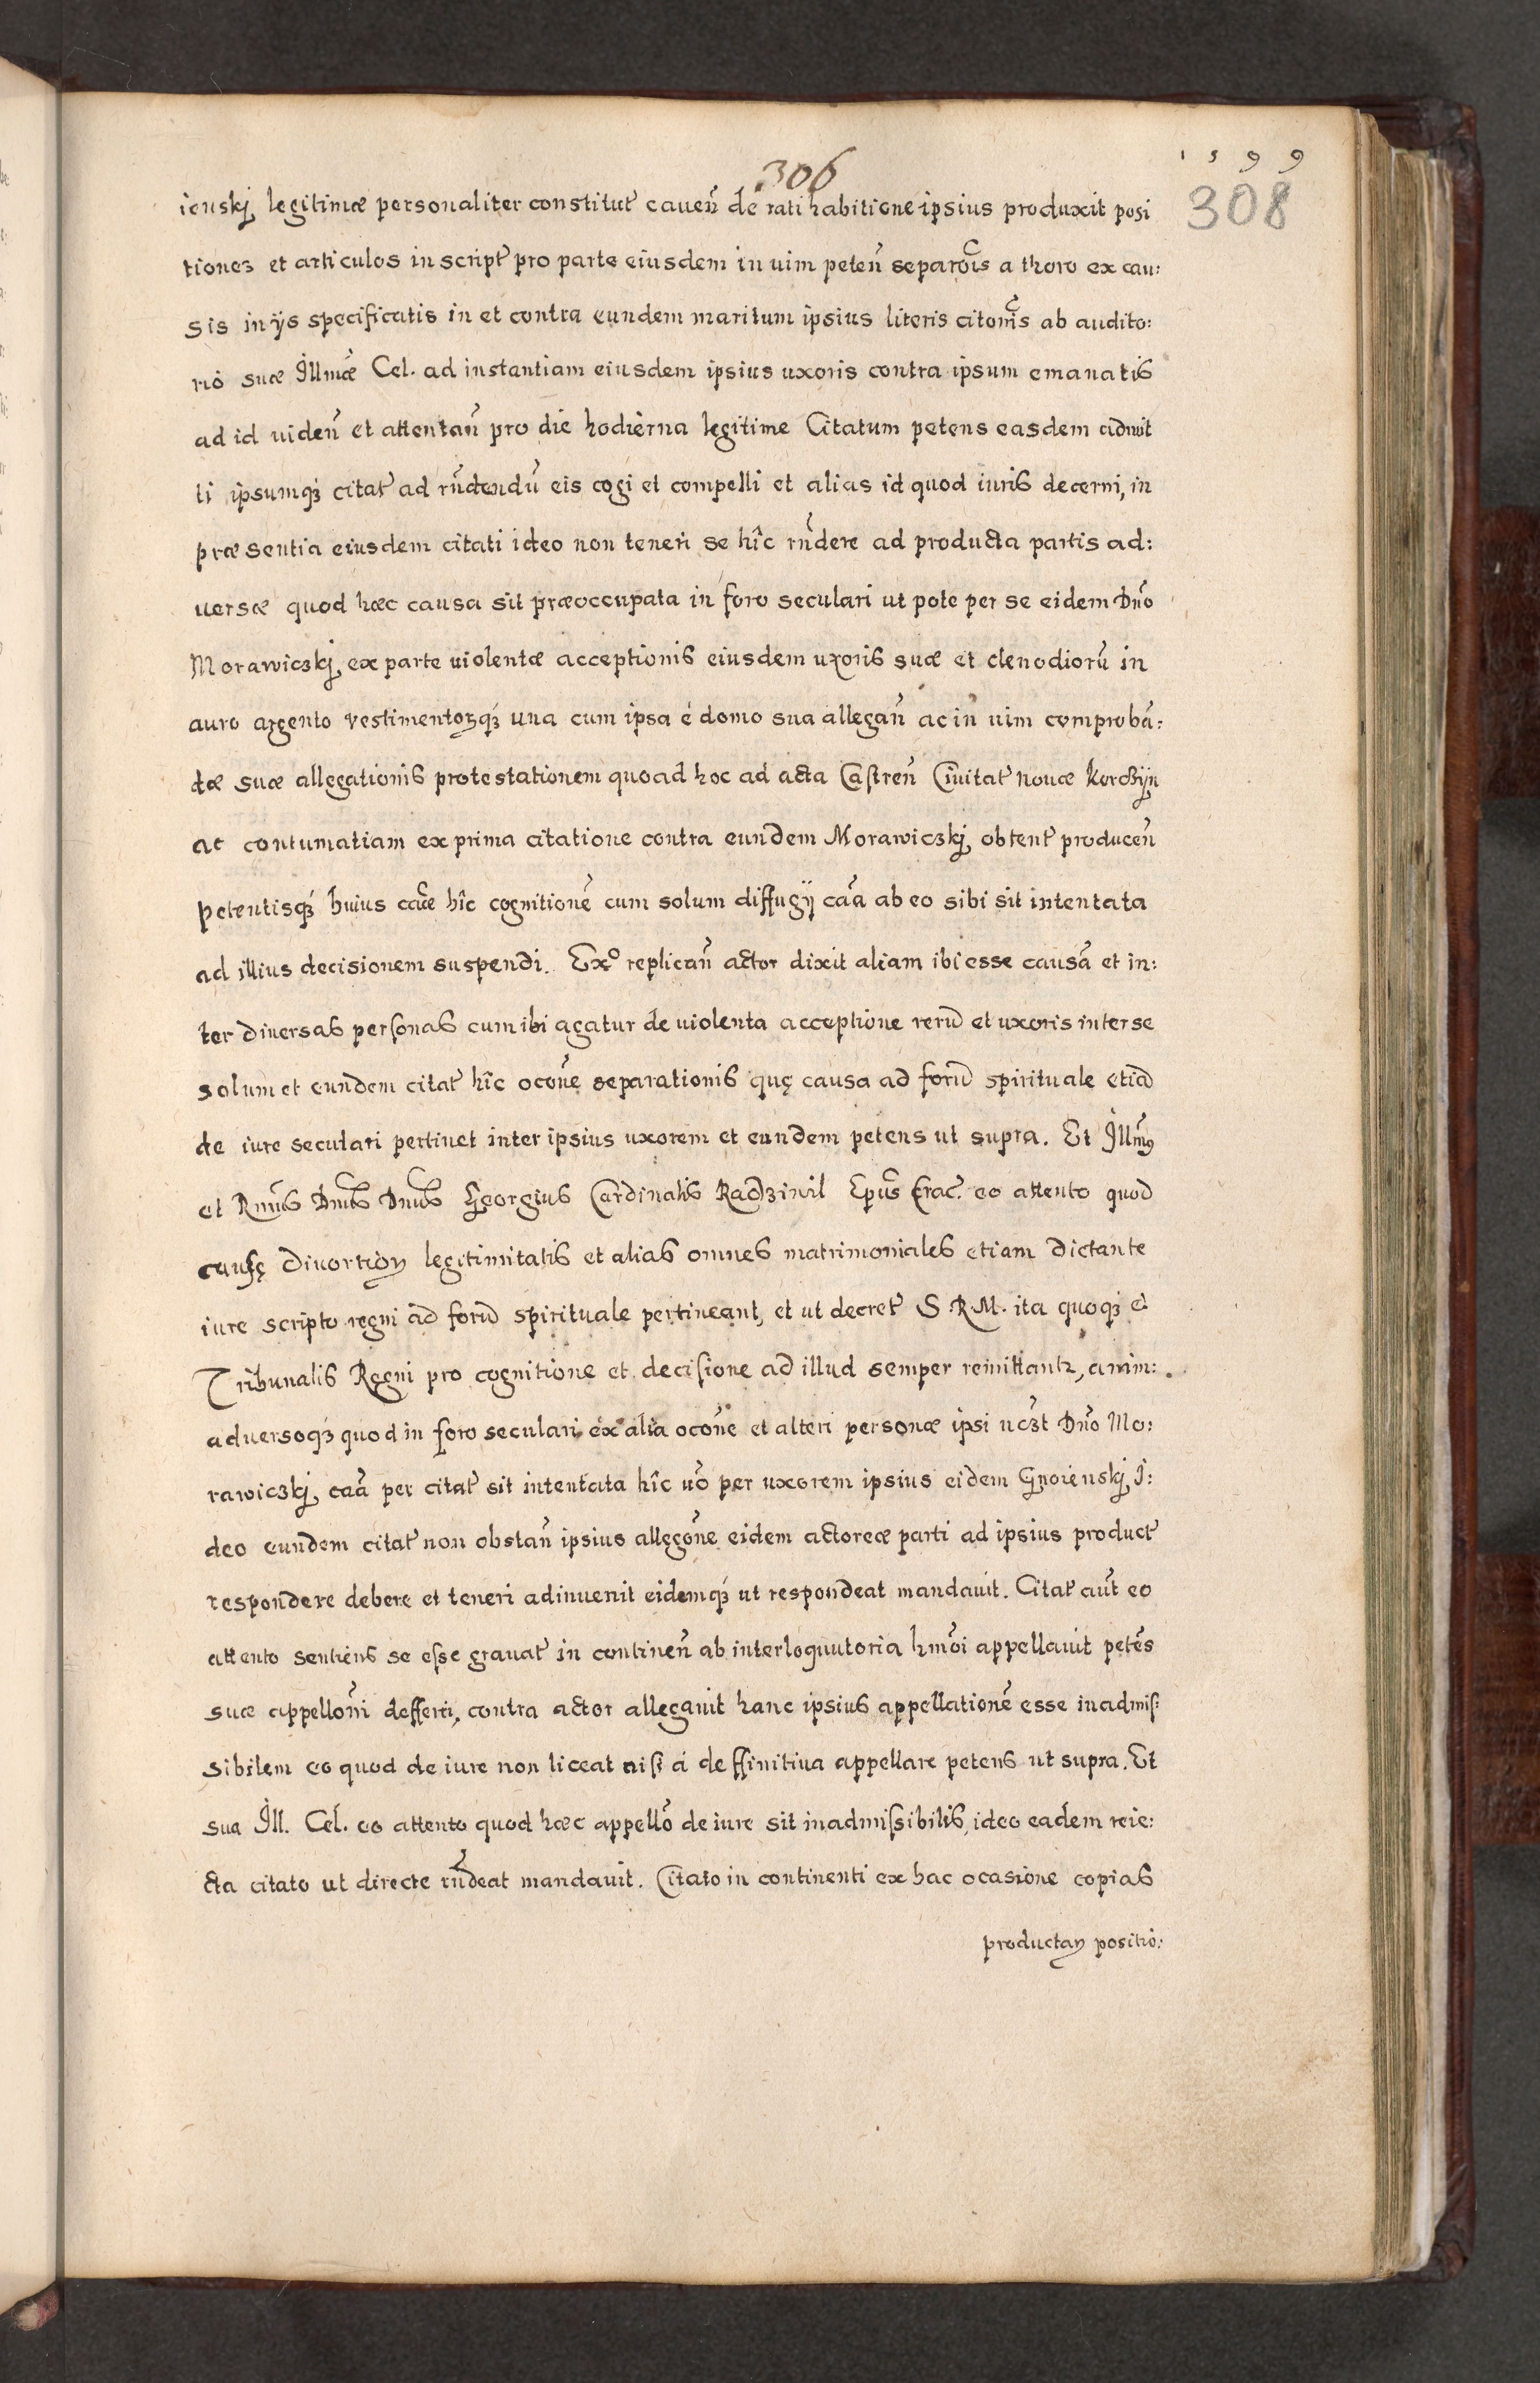 1599
306
308
ienskj legitimæ personaliter constitut̃ caueñ de rati habitione ipsius produxit posi
tiones et articulos in script̃ pro parte eiusdem in uim peteñ separõis a thoro ex cau:
sis in ijs specificatis in et contra eundem maritum ipsius literis citõnis ab audito:
rio suæ Illmæ̃ Cel. ad instantiam eiusdem ipsius uxoris contra ipsum emanatis
ad id uideñ et attentañ pro die hodierna legitime Citatum petens easdem admit
ti ipsumqꝫ citat̃ ad rñdendũ eis cogi et compelli et alias id quod iuris decerni, in
præsentia eiusdem citati ideo non teneri se hîc rñdere ad producta partis ad:
uersæ quod hæc causa sit præoccupata in foro seculari ut pote per se eidem Dño
Morawiczkj ex parte uiolentæ acceptionis eiusdem uxoris suæ et clenodiorũ in
auro argento vestimentoꝝqꝫ una cum ipsa é domo sua allegañ ac in uim comprobã:
dæ suæ allegationis protestationem quoad hoc ad acta Castreñ Ciuitat̃ nouæ Korczÿn
ac contumatiam ex prima citatione contra eundem Morawiczkj obtent̃ produceñ
petentisqꝫ huius caũe hîc cognitionẽ cum solum diffugij caã ab eo sibi sit intentata
ad illius decisionem suspendi. Exº replicañ actor dixit aliam ibi esse causã et in:
ter diuersas personas cum ibi agatur de uiolenta acceptione rerũ et uxoris inter se
solum et eundem citat̃ hîc ocõne separationis quę causa ad forũ spirituale etiã
de iure seculari pertinet inter ipsius uxorem et eundem petens ut supra. Et Illmꝰ
et Rmũs Dnũs Dnũs Georgius Cardinalis Radziwil Epũs Crac̃. eo attento quod
causę diuortioꝝ legitimitatis et alias omnes matrimoniales etiam dictante
iure scripto regni ad forũ spirituale pertineant, et ut decret̃ S. R. M. ita quoqꝫ é
Tribunalis Regni pro cognitione et decisione ad illud semper remittantr, anim:
aduersoqꝫ quod in foro seculari ex alia ocõne et alteri personæ ipsi uczt Dño Mo:
rawiczkj caã per citat̃ sit intentata hîc uõ per uxorem ipsius eidem Gnoienskj I:
deo eundem citat̃ non obstañ ipsius allegõne eidem actoreæ parti ad ipsius product̃
respondere debere et teneri adinuenit eidemqꝫ ut respondeat mandauit. Citat̃ aũt eo
attento sentiens se esse grauat̃ in contineñ ab interloquutoria hmõi appellauit petẽs
suæ appellõni defferri, contra actor allegauit hanc ipsius appellationẽ esse inadmis:
sibilem eo quod de iure non liceat nisi á deffinitiua appellare petens ut supra. Et
sua Ill. Cel. eo attento quod hæc appellõ de iure sit inadmissibilis, ideo eadem reie:
cta citato ut directe rñdeat mandauit. Citato in continenti ex hac ocasione copias
productaꝝ positio: